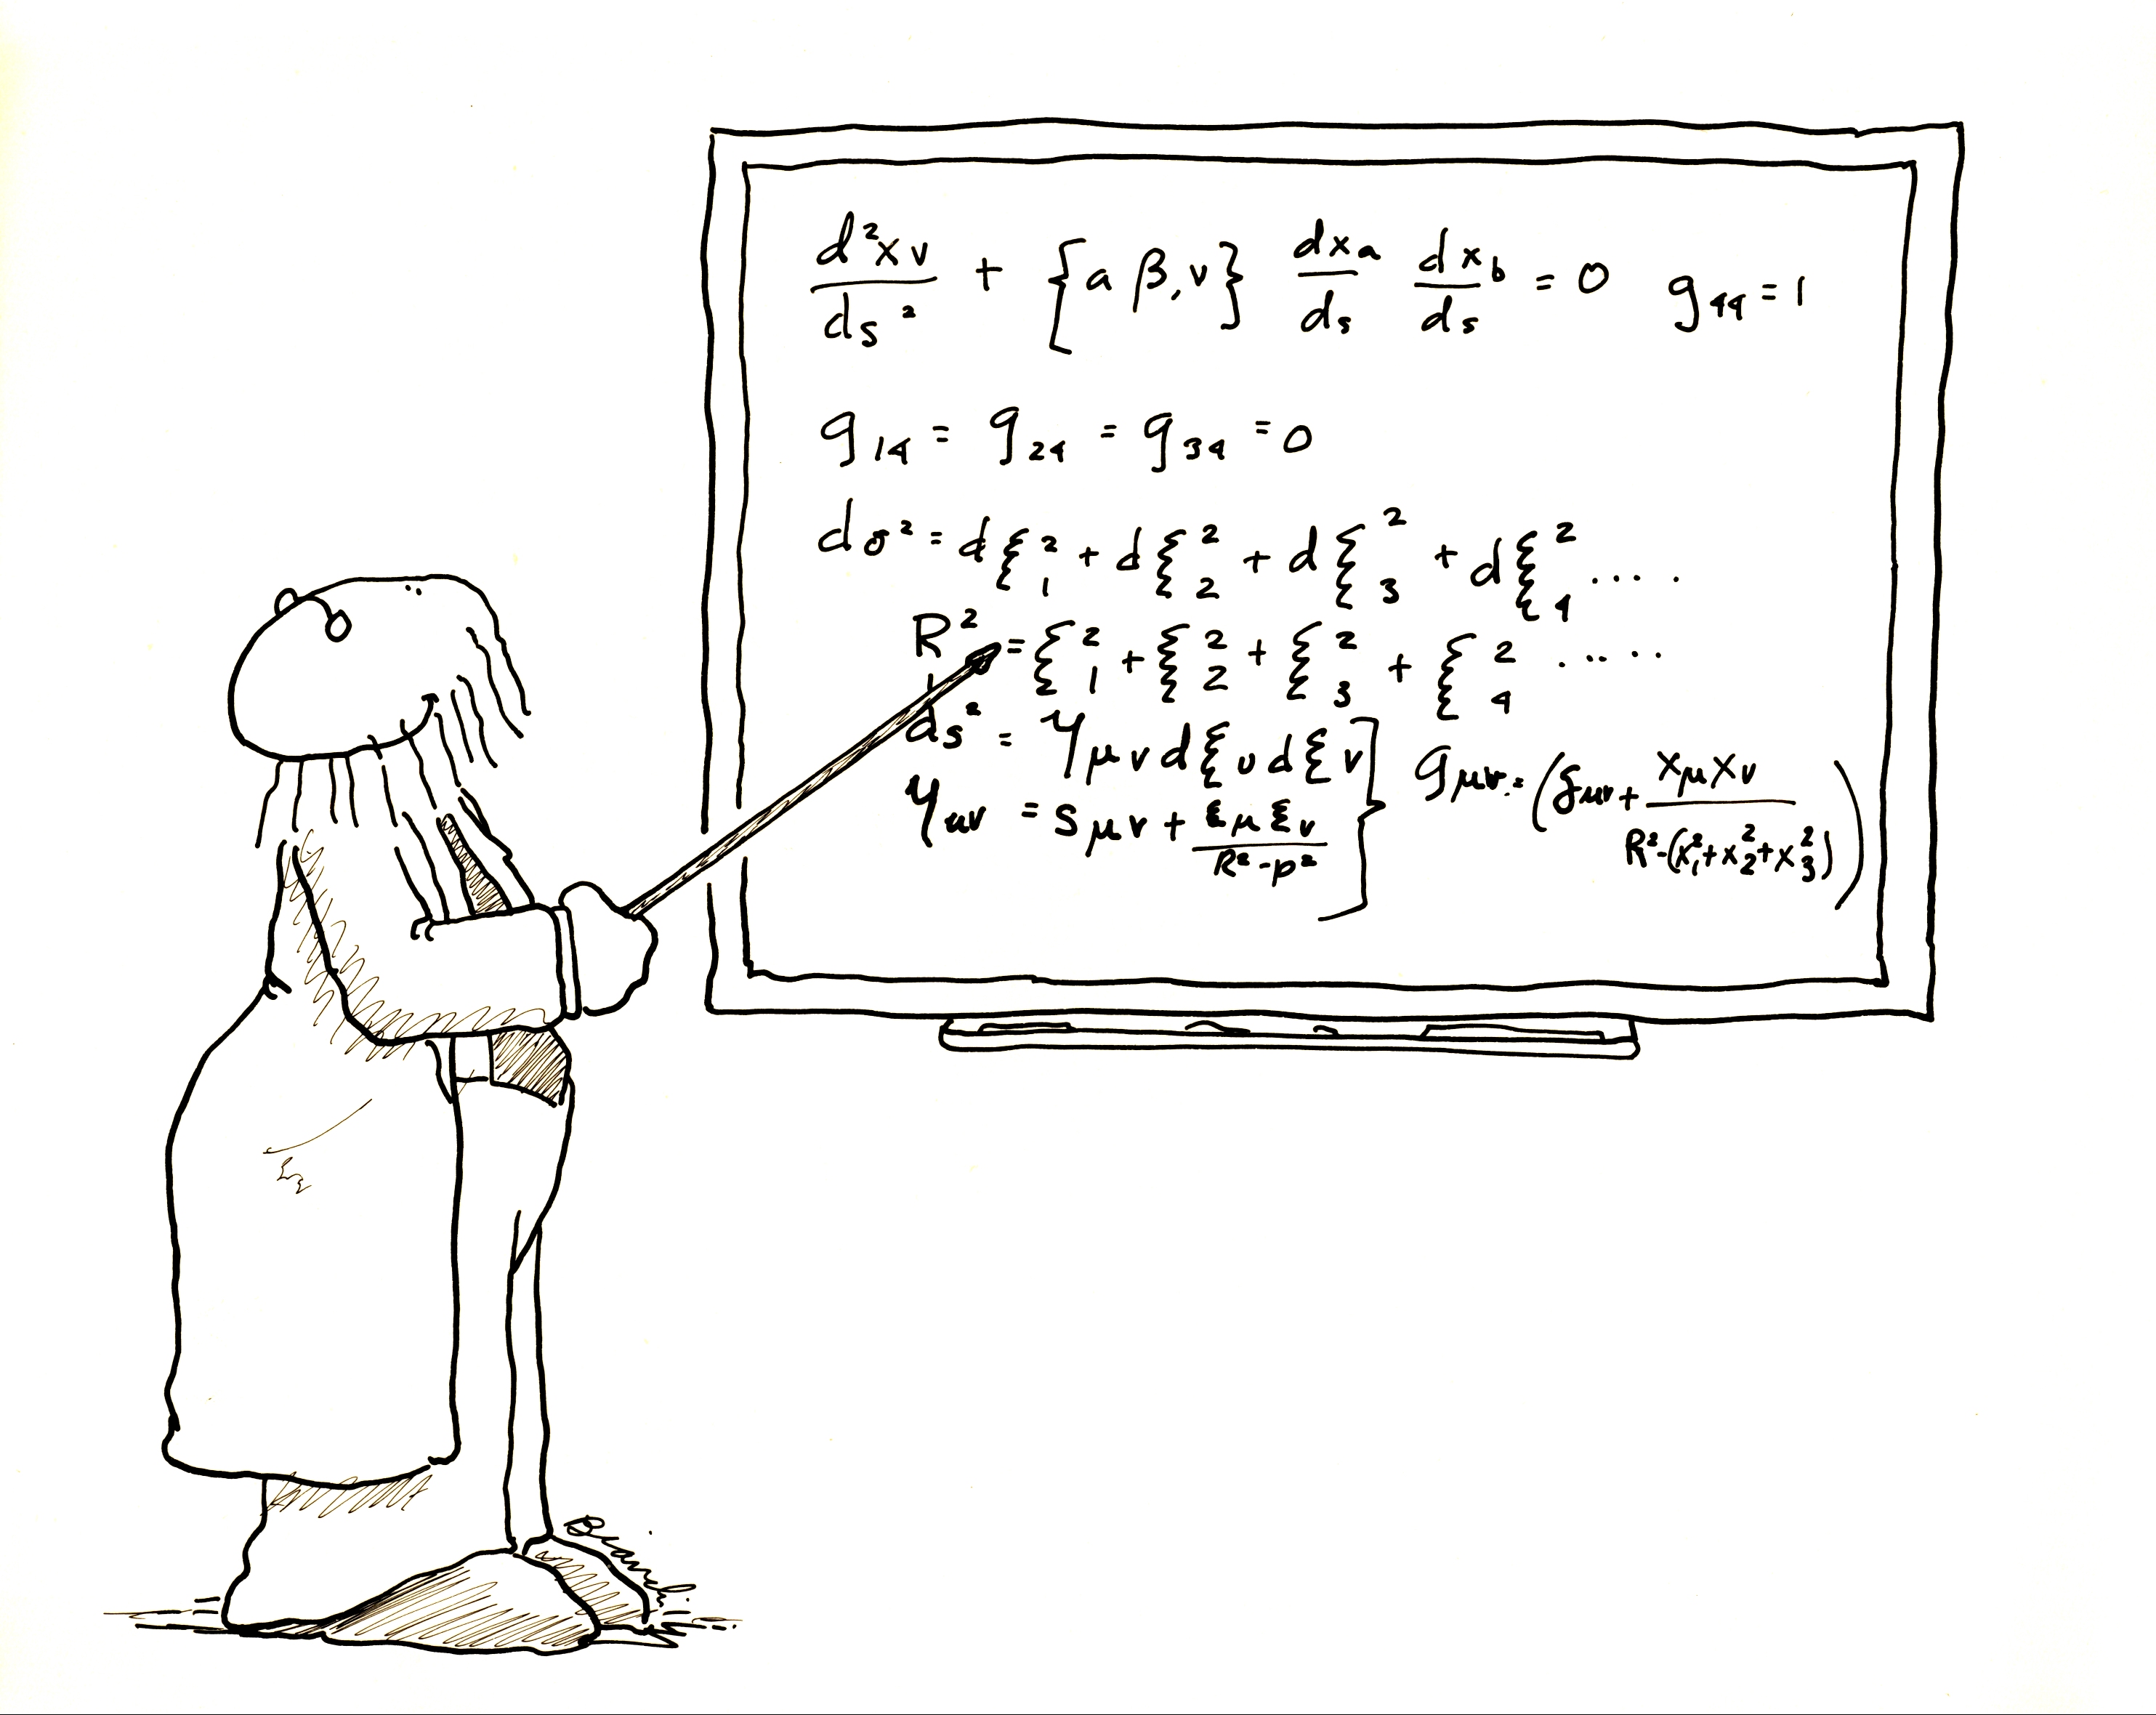 d²xv/ds² + {a β, v} dxa/ds dxb/ds = 0 g₄₄ = 1
g₁₄ = g₂₄ = g₃₄ = 0
dσ² = dξ₁² + dξ₂² + dξ₃² + dξ₄² ....
R² = ξ₁² + ξ₂² + ξ₃² + ξ₄² .....
ds² = γμν dξυ dξν]
γμν = Sμν + ξμ ξν/R²-p² } gμν = (gμν + xμxν/R²-(x₁²+x₂²+x₃²))